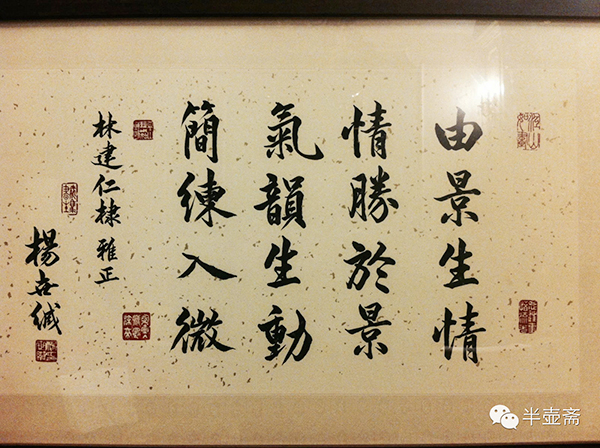 由景生情
情勝於景
氣韻生動
簡練入微
林建仁棣 雅正
江山如畫
半壶斋